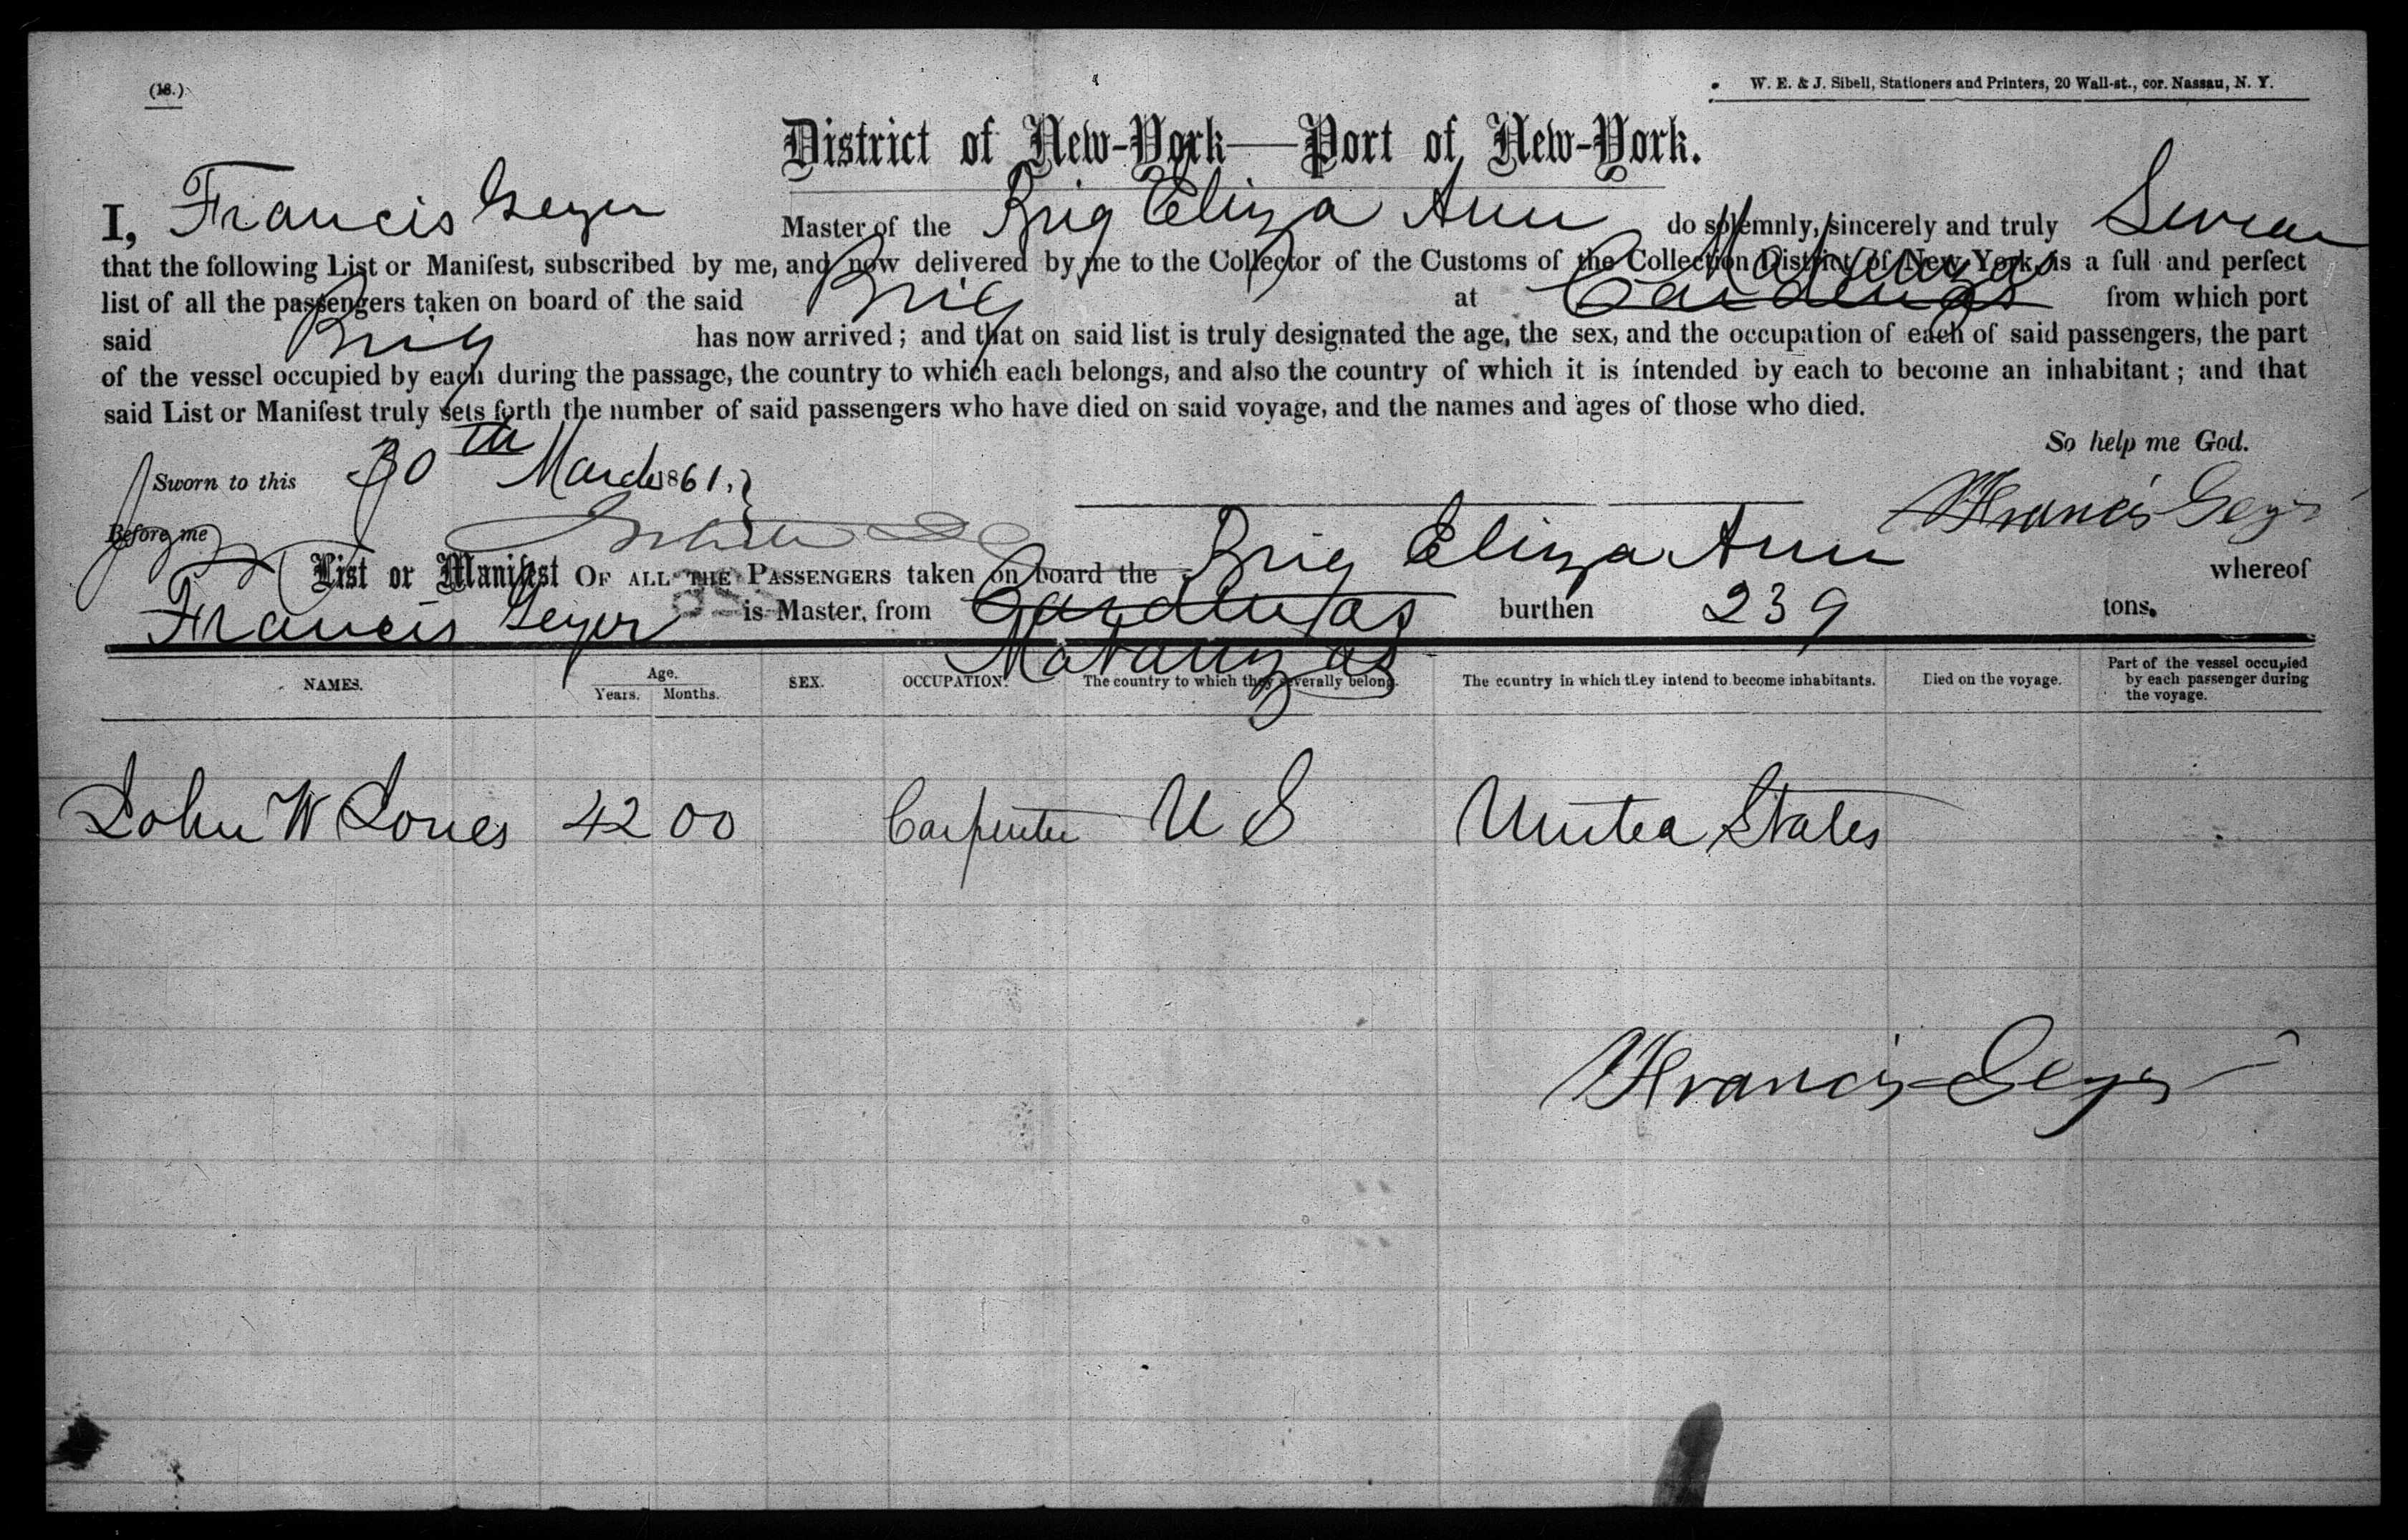 (18.)
W. E. & J. Sibell, Stationers and Printers, 20 Wall-st., cor. Nassau, N. Y.
District of New-York—Port of New-York.
I, Francis Geyer Master of the Brig Eliza Ann do solemnly, sincerely and truly Swear
that the following List or Manifest, subscribed by me, and now delivered by me to the Collector of the Customs of the Collection District of New York, is a full and perfect
Matanzas
list of all the passengers taken on board of the said Brig at Cardenas from which port
said Brig has now arrived; and that on said list is truly designated the age, the sex, and the occupation of each of said passengers, the part
of the vessel occupied by each during the passage, the country to which each belongs, and also the country of which it is intended by each to become an inhabitant; and that
said List or Manifest truly sets forth the number of said passengers who have died on said voyage, and the names and ages of those who died.
So help me God.
Sworn to this 30th March 1861,
Francis Geyer
Before me
List or Manifest OF ALL THE PASSENGERS taken on board the Brig Eliza Ann whereof
Francis Geyer is Master, from Cardenas burthen 239 tons.
Matanzas
NAMES. Age. Years. Months. SEX. OCCUPATION. The country to which they severally belong. The country in which they intend to become inhabitants. Died on the voyage. Part of the vessel occupied by each passenger during the voyage.
John W Jones 42 00 Carpenter U S United States
Francis Geyer